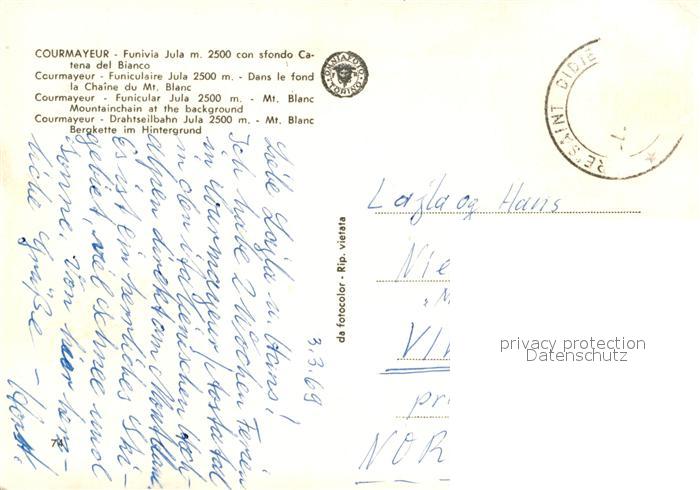 COURMAYEUR - Funivia Jula m. 2500 con sfondo Ca-
tena del Bianco
Courmayeur - Funiculaire Jula 2500 m. - Dans le fond
la Chaîne du Mt. Blanc
Courmayeur - Funicular Jula 2500 m. - Mt. Blanc
Mountainchain at the background
Courmayeur - Drahtseilbahn Jula 2500 m. - Mt. Blanc
Bergkette im Hintergrund
OMNIAFOTO
TORINO
RE SAINT DIDIE
3.3.69
Liebe Lajla u. Hans!
Ich habe 2 Wochen Ferien
in Courmayeur (Aostatal
in den italienischen Hoch-
alpen direkt am Montblanc.
Es ist ein herrliches Ski-
gebiet, viel Schnee und
Sonne. Von hier herz-
liche Grüße -
Horst.
74
da fotocolor - Rip. vietata
Lajla og Hans
Nie
VI
pr
NOR
privacy protection
Datenschutz